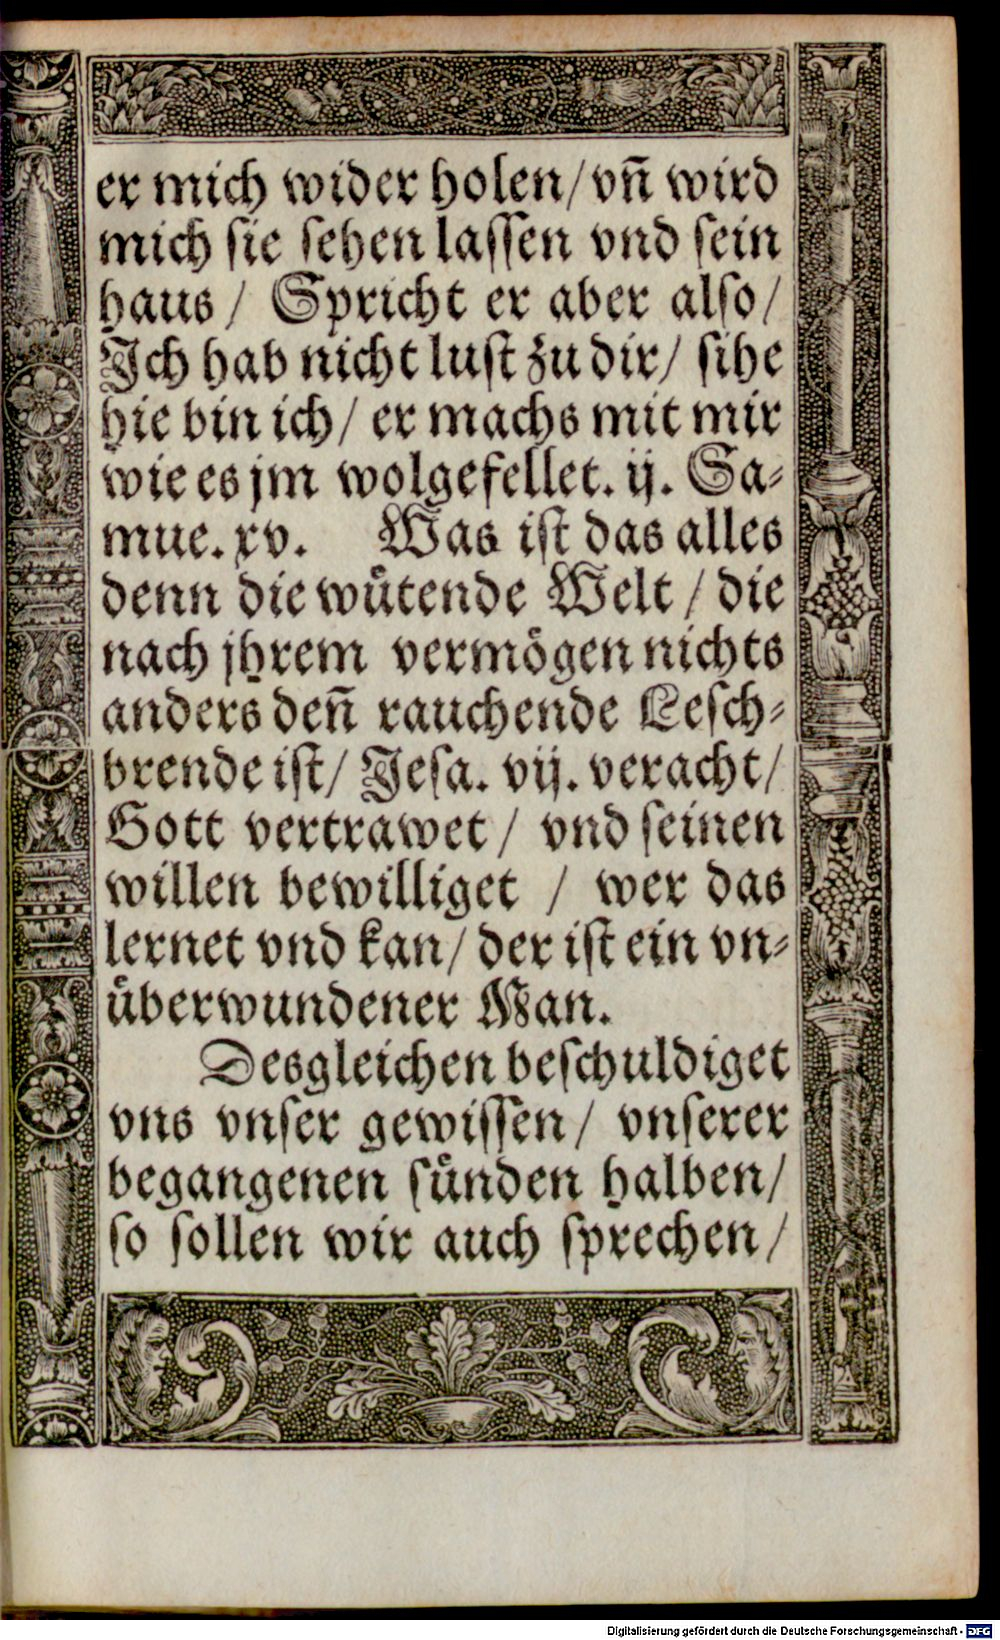 er mich wider holen/ vñ wird
mich sie sehen lassen vnd sein
haus / Spricht er aber also/
Ich hab nicht lust zu dir/ sihe
hie bin ich/ er machs mit mir
wie es jm wolgefellet. ij. Sa-
mue. xv. Was ist das alles
denn die wuͤtende Welt / die
nach jhrem vermoͤgen nichts
anders deñ rauchende Lesch-
brende ist/ Jesa. vij. veracht/
Gott vertrawet / vnd seinen
willen bewilliget / wer das
lernet vnd kan/ der ist ein vn-
uͤberwundener Man.
Desgleichen beschuldiget
vns vnser gewissen/ vnserer
begangenen suͤnden halben/
so sollen wir auch sprechen/
Digitalisierung gefördert durch die Deutsche Forschungsgemeinschaft - DFG